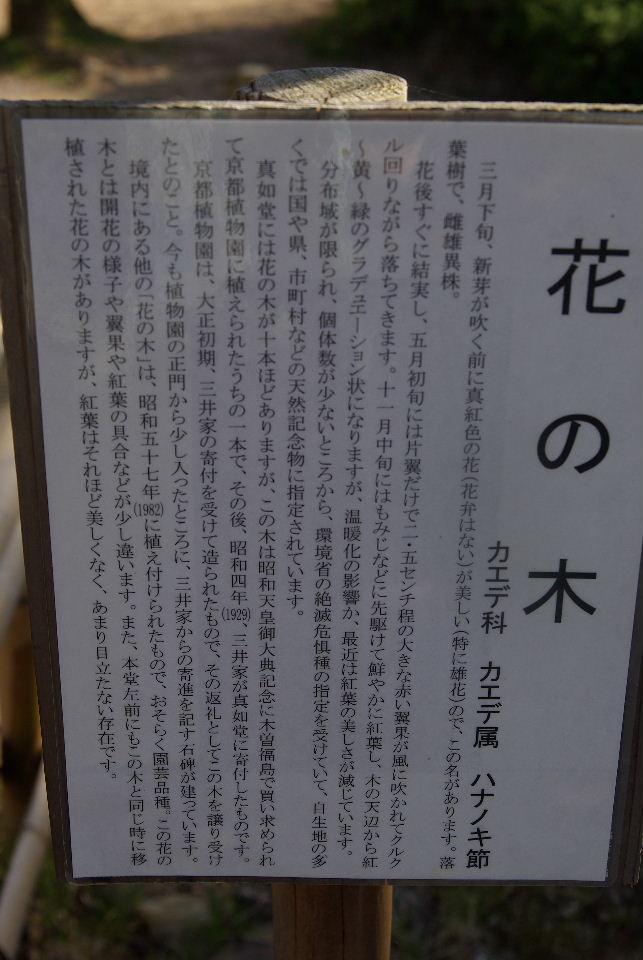 花の木
カエデ科　カエデ属　ハナノキ節
三月下旬、新芽が吹く前に真紅色の花(花弁はない)が美しい(特に雄花)ので、この名があります。落
葉樹で、雌雄異株。
花後すぐに結実し、五月初旬には片翼だけで二・五センチ程の大きな赤い翼果が風に吹かれてクルク
ル回りながら落ちてきます。十一月中旬にはもみじなどに先駆けて鮮やかに紅葉し、木の天辺から紅
～黄～緑のグラデュエーション状になりますが、温暖化の影響か、最近は紅葉の美しさが減じています。
分布域が限られ、個体数が少ないところから、環境省の絶滅危惧種の指定を受けていて、自生地の多
くでは国や県、市町村などの天然記念物に指定されています。
真如堂には花の木が十本ほどありますが、この木は昭和天皇御大典記念に木曽福島で買い求められ
て京都植物園に植えられたうちの一本で、その後、昭和四年(1929)、三井家が真如堂に寄付したものです。
京都植物園は、大正初期、三井家の寄付を受けて造られたもので、その返礼としてこの木を譲り受け
たとのこと。今も植物園の正門から少し入ったところに、三井家からの寄進を記す石碑が建っています。
境内にある他の「花の木」は、昭和五十七年(1982)に植え付けられたもので、おそらく園芸品種。この花の
木とは開花の様子や翼果や紅葉の具合などが少し違います。また、本堂左前にもこの木と同じ時に移
植された花の木がありますが、紅葉はそれほど美しくなく、あまり目立たない存在です。